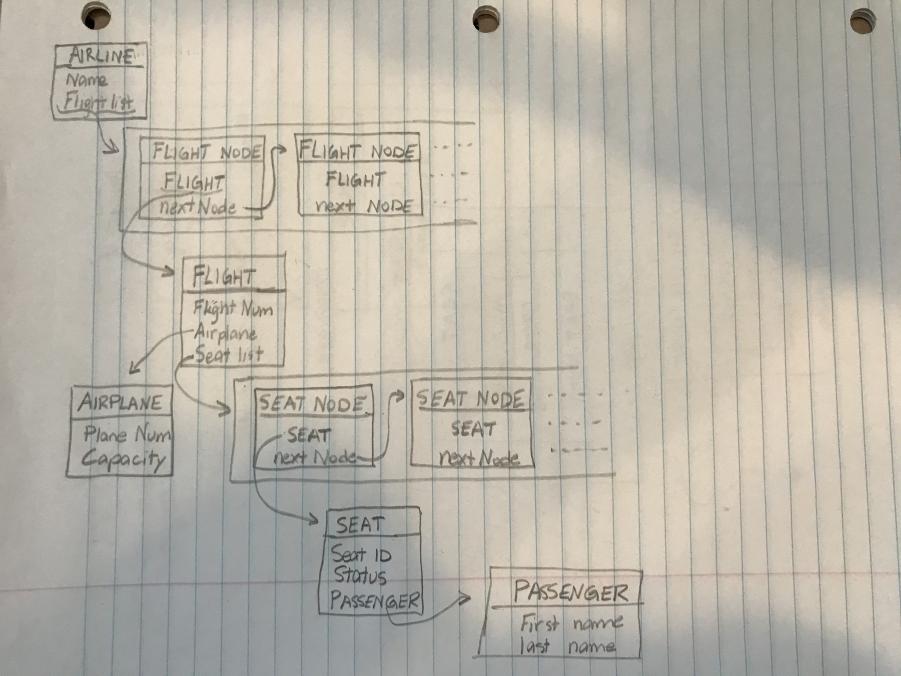 AIRLINE
Name
Flight list
FLIGHT NODE
FLIGHT
next Node
FLIGHT NODE
FLIGHT
next NODE
FLIGHT
Flight Num
Airplane
Seat list
AIRPLANE
Plane Num
Capacity
SEAT NODE
SEAT
next Node
SEAT NODE
SEAT
next Node
SEAT
Seat ID
Status
PASSENGER
PASSENGER
First name
last name